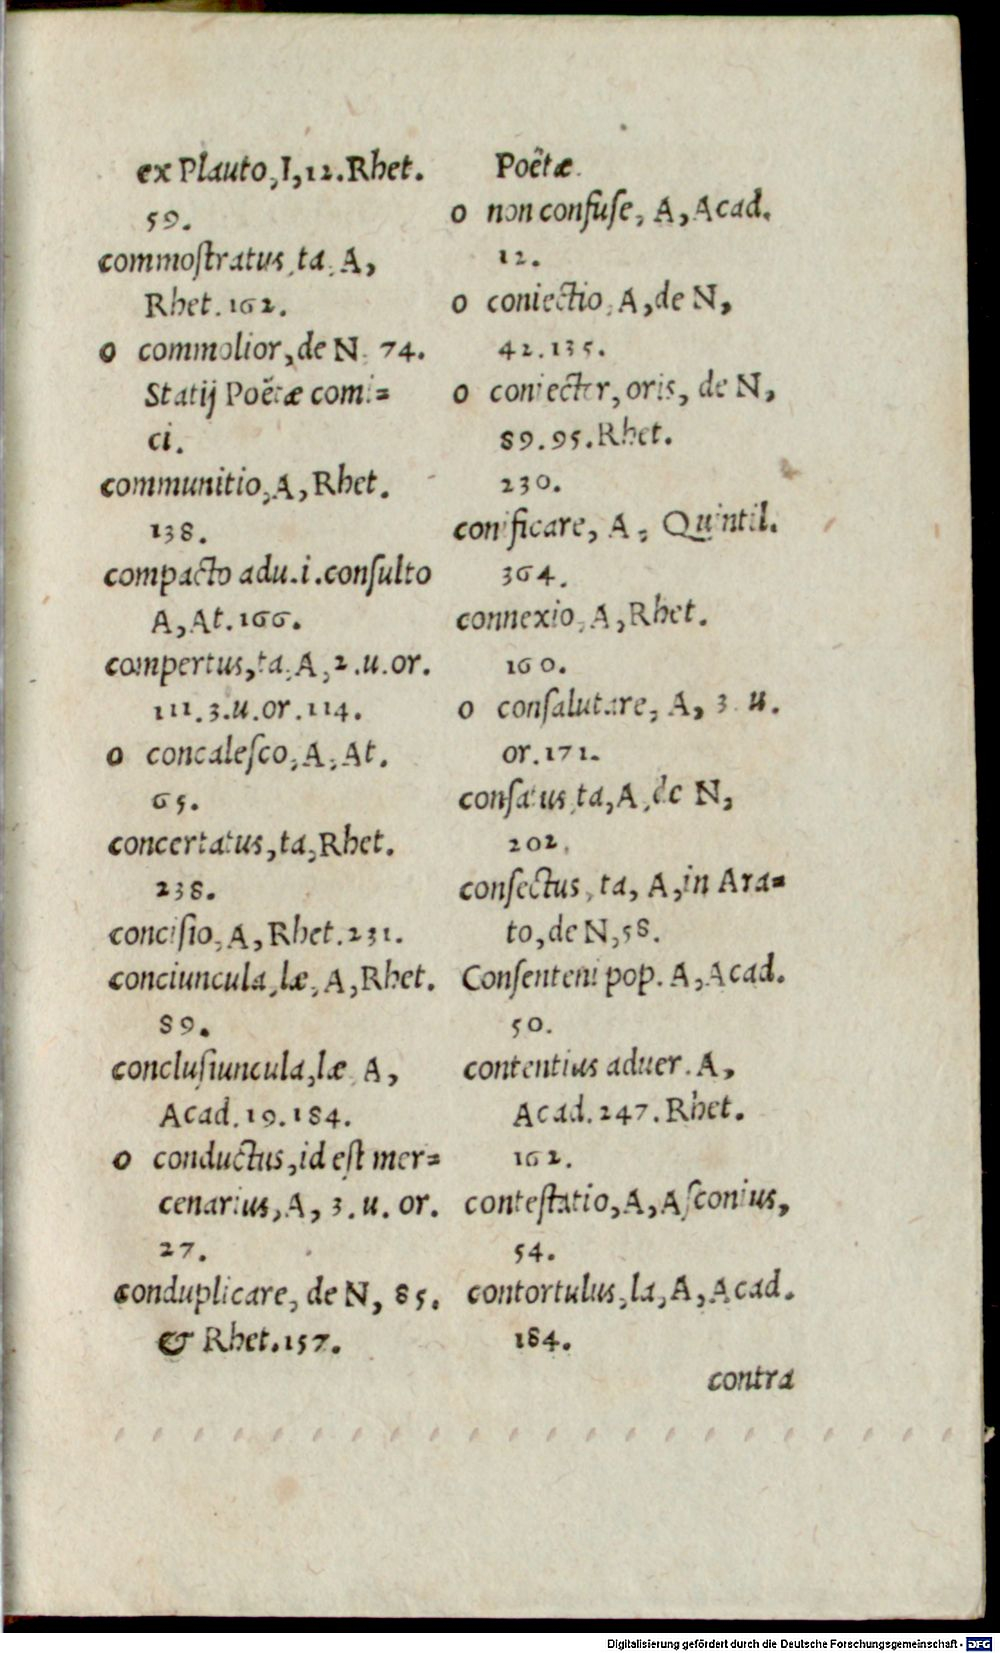 ex Plauto, I, 12. Rhet.
59.
commoſtratus, ta, A,
Rhet. 162.
o commolior, de N. 74.
Statij Poëtæ comi=
ci.
communitio, A, Rhet.
138.
compacto adu. i. conſulto
A, At. 166.
compertus, ta, A, 2. u. or.
111. 3. u. or. 114.
o concaleſco, A, At.
65.
concertatus, ta, Rhet.
238.
conciſio, A, Rhet. 231.
conciuncula, læ, A, Rhet.
89.
concluſiuncula, læ, A,
Acad. 19. 184.
o conductus, id eſt mer=
cenarius, A, 3. u. or.
27.
conduplicare, de N, 85.
& Rhet. 157.
Poëtæ.
o non confuſe, A, Acad.
12.
o coniectio, A, de N,
42. 135.
o coniector, oris, de N,
89. 95. Rhet.
230.
conificare, A, Quintil.
364.
connexio, A, Rhet.
160.
o conſalutare, A, 3. u.
or. 171.
conſatus, ta, A, de N,
202.
conſectus, ta, A, in Ara=
to, de N, 58.
Conſenteni pop. A, Acad.
50.
contentius aduer. A,
Acad. 247. Rhet.
162.
conteſtatio, A, Aſconius,
54.
contortulus, la, A, Acad.
184.
contra
Digitalisierung gefördert durch die Deutsche Forschungsgemeinschaft - DFG